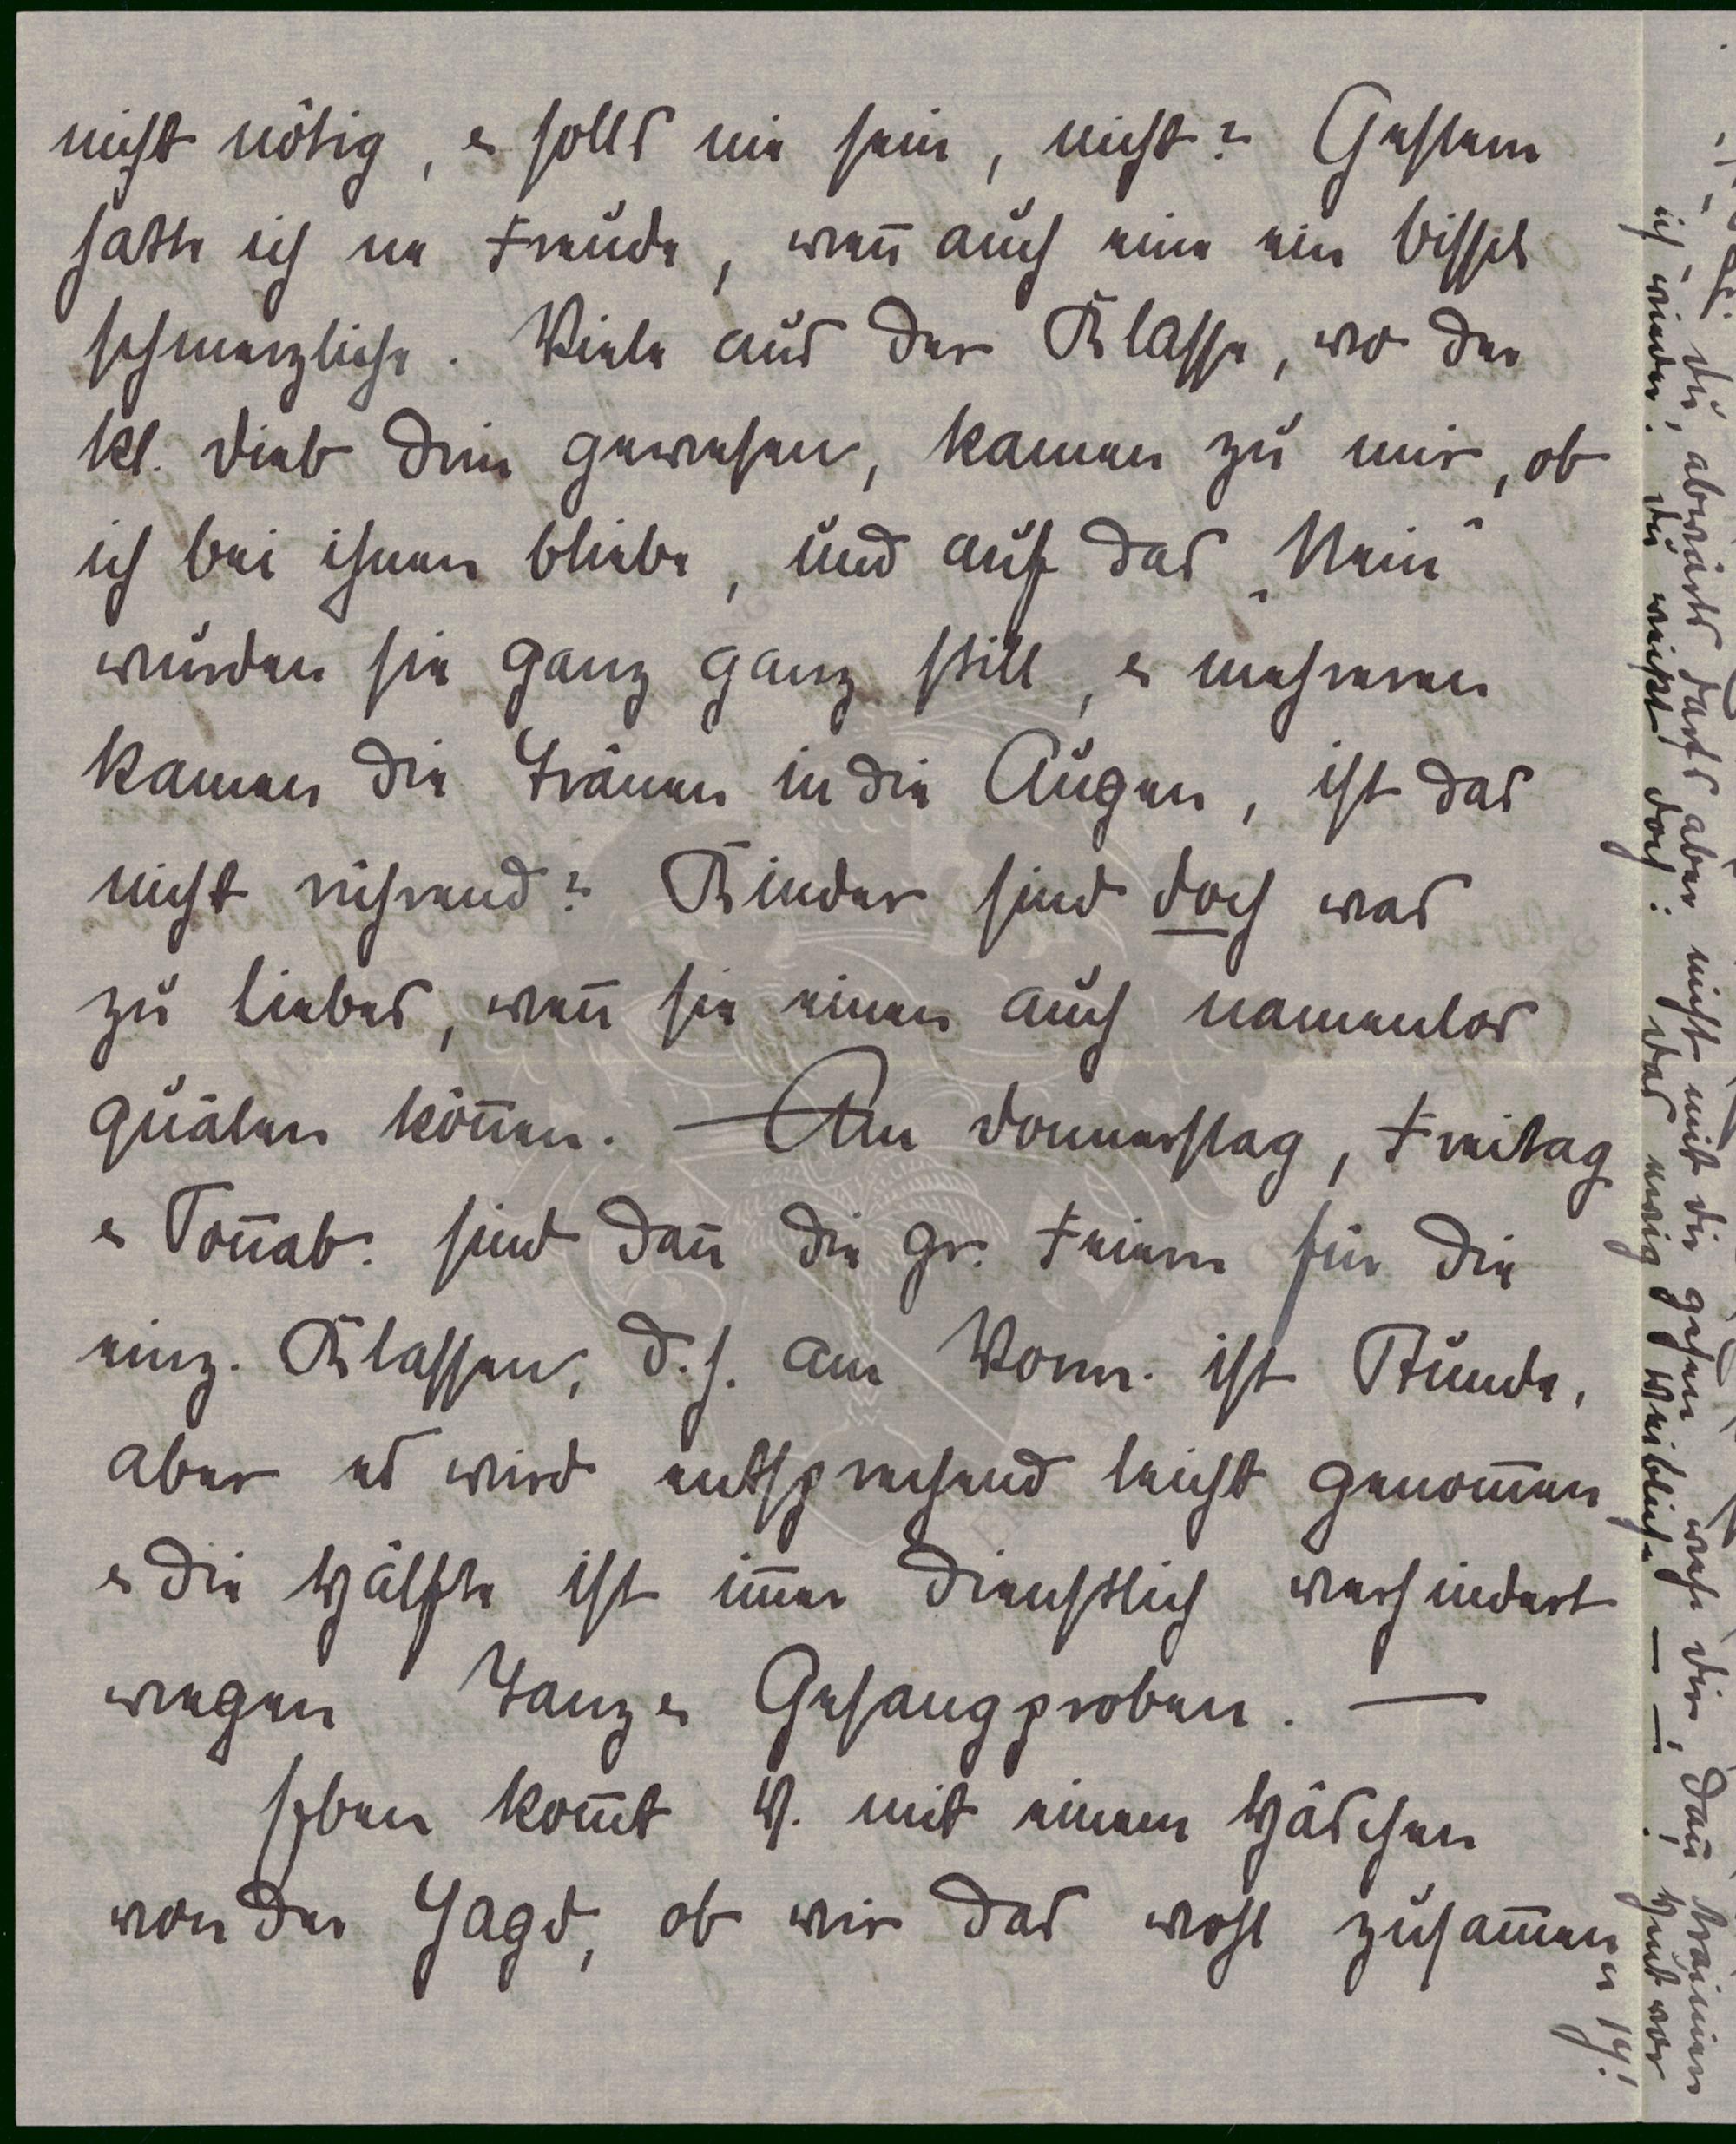 nicht nötig, u. solls nie sein, nicht? Gestern
hatte ich ne Freude, wen̅ auch eine ein bissel
schmerzliche. Viele aus der Klasse, wo der
kl. Dieb drin gewesen, kamen zu mir, ob
ich bei ihnen bliebe, und auf das „Nein“
wurden sie ganz ganz still, u. mehreren
kamen die Tränen in die Augen, ist das
nicht rührend? Kinder sind doch was
zu liebes, wen̅ sie einen auch namenlos
quälen kön̅en. — Am Donnerstag, Freitag
u. Son̅ab. sind dan̅ die gr. Feiern für die
einz. Klassen, d.h. am Vorm. ist Stunde,
aber es wird entsprechend leicht genom̅en
u. die Hälfte ist im̅er dienstlich verhindert
wegen Tanz u. Gesangproben. —
Soeben kom̅t V. mit einem Häschen
von der Jagd, ob wir das wohl zusam̅en
Du, abwärts darfs aber nicht mit dir gehen, wehe dir, dan̅
ich wieder! Du weißt doch: das ewig Weibliche — — ! Heut vor
14!